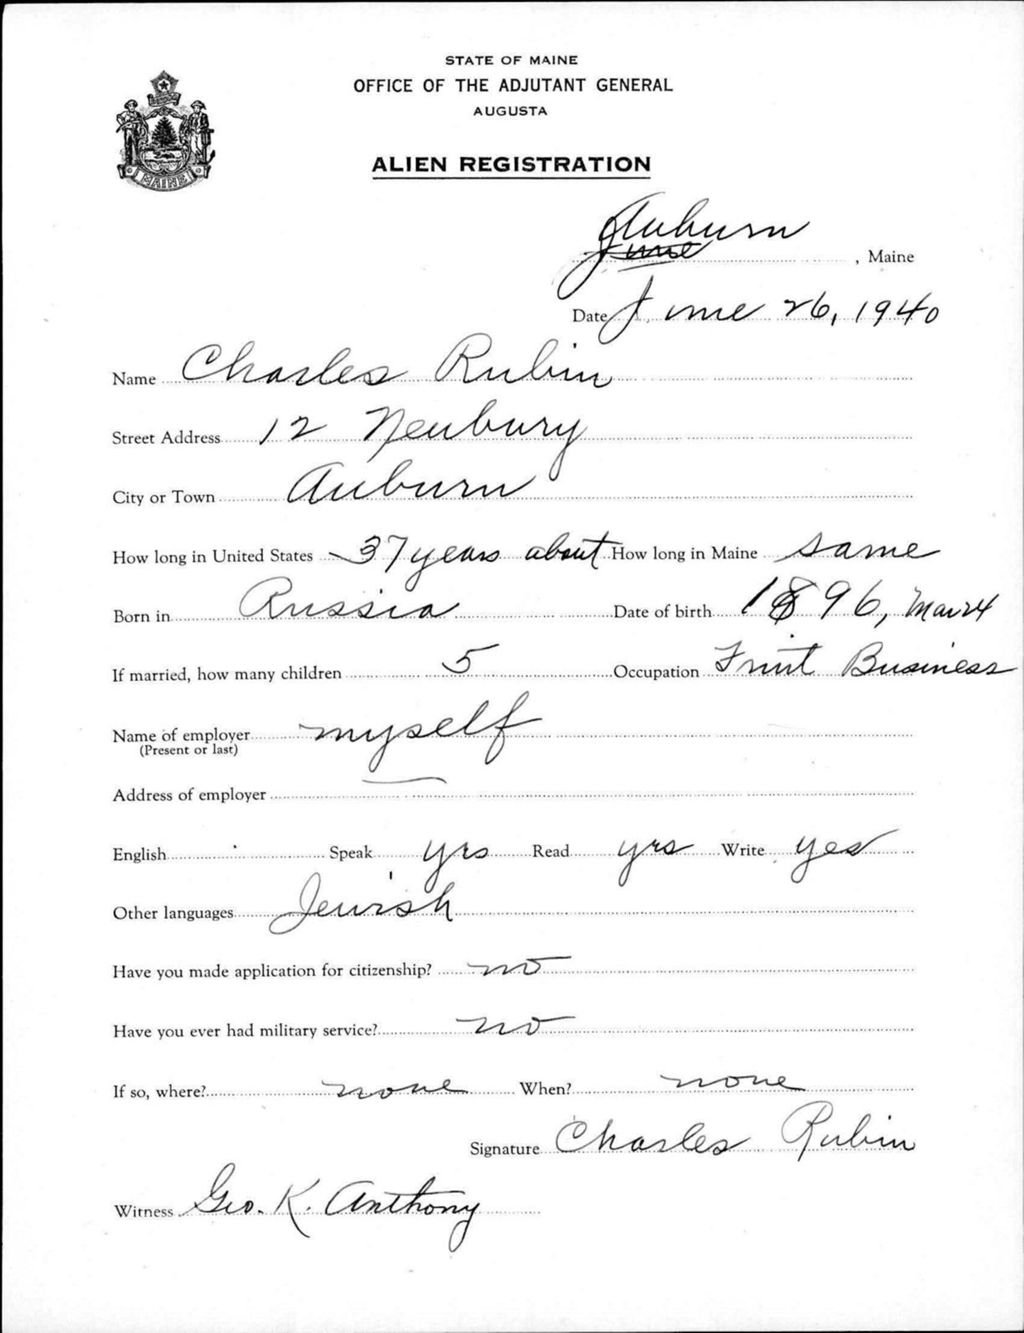 STATE OF MAINE
OFFICE OF THE ADJUTANT GENERAL
AUGUSTA
MAINE
ALIEN REGISTRATION
Auburn
June , Maine
Date June 26, 1940
Name Charles Rubin
Street Address 12 Newbury
City or Town Auburn
How long in United States 37 years about How long in Maine same
Born in Russia Date of birth 1896, Mar 24
If married, how many children 5 Occupation Fruit Business
Name of employer myself
(Present or last)
Address of employer
English Speak yes Read yes Write yes
Other languages Jewish
Have you made application for citizenship? no
Have you ever had military service? no
If so, where? none When? none
Signature Charles Rubin
Witness Geo. K. Anthony